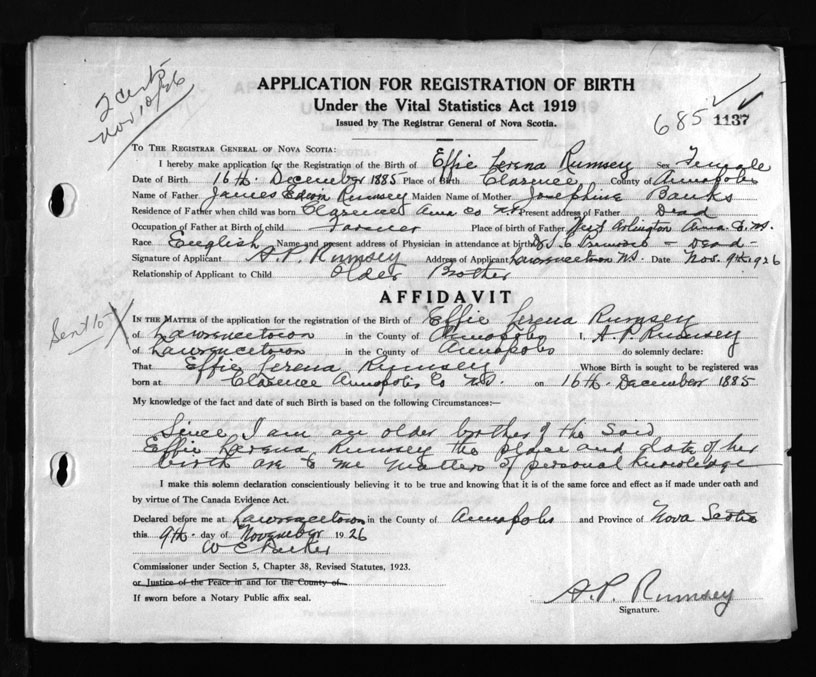 2 certs
Nov 10/26
APPLICATION FOR REGISTRATION OF BIRTH
Under the Vital Statistics Act 1919
Issued by The Registrar General of Nova Scotia.
685 1137
TO THE REGISTRAR GENERAL OF NOVA SCOTIA:
I hereby make application for the Registration of the Birth of Effie Lerena Rumsey Sex Female
Date of Birth 16th December 1885 Place of Birth Clarence County of Annapolis
Name of Father James Edson Rumsey Maiden Name of Mother Josephine Banks
Residence of Father when child was born Clarence Anna Co N.S. Present address of Father Dead
Occupation of Father at Birth of child Farmer Place of birth of Father West Arlington Anna Co. N.S.
Race English Name and present address of Physician in attendance at birth Dr. - Dead -
Signature of Applicant A. P. Rumsey Address of Applicant Lawrencetown N.S. Date Nov. 9th 1926
Relationship of Applicant to Child Older Brother
AFFIDAVIT
Sent 10
IN THE MATTER of the application for the registration of the Birth of Effie Lerena Rumsey
of Lawrencetown in the County of Annapolis I, A. P. Rumsey
of Lawrencetown in the County of Annapolis do solemnly declare:
That Effie Lerena Rumsey Whose Birth is sought to be registered was
born at Clarence Annapolis Co N.S. on 16th December 1885
My knowledge of the fact and date of such Birth is based on the following Circumstances:—
Since I am an older brother of the said
Effie Lerena Rumsey the place and date of her
birth are to me matters of personal knowledge
I make this solemn declaration conscientiously believing it to be true and knowing that it is of the same force and effect as if made under oath and
by virtue of The Canada Evidence Act.
Declared before me at Lawrencetown in the County of Annapolis and Province of Nova Scotia
this 9th day of November 1926
W C Parker
Commissioner under Section 5, Chapter 38, Revised Statutes, 1923.
or Justice of the Peace in and for the County of
If sworn before a Notary Public affix seal.
A. P. Rumsey
Signature.